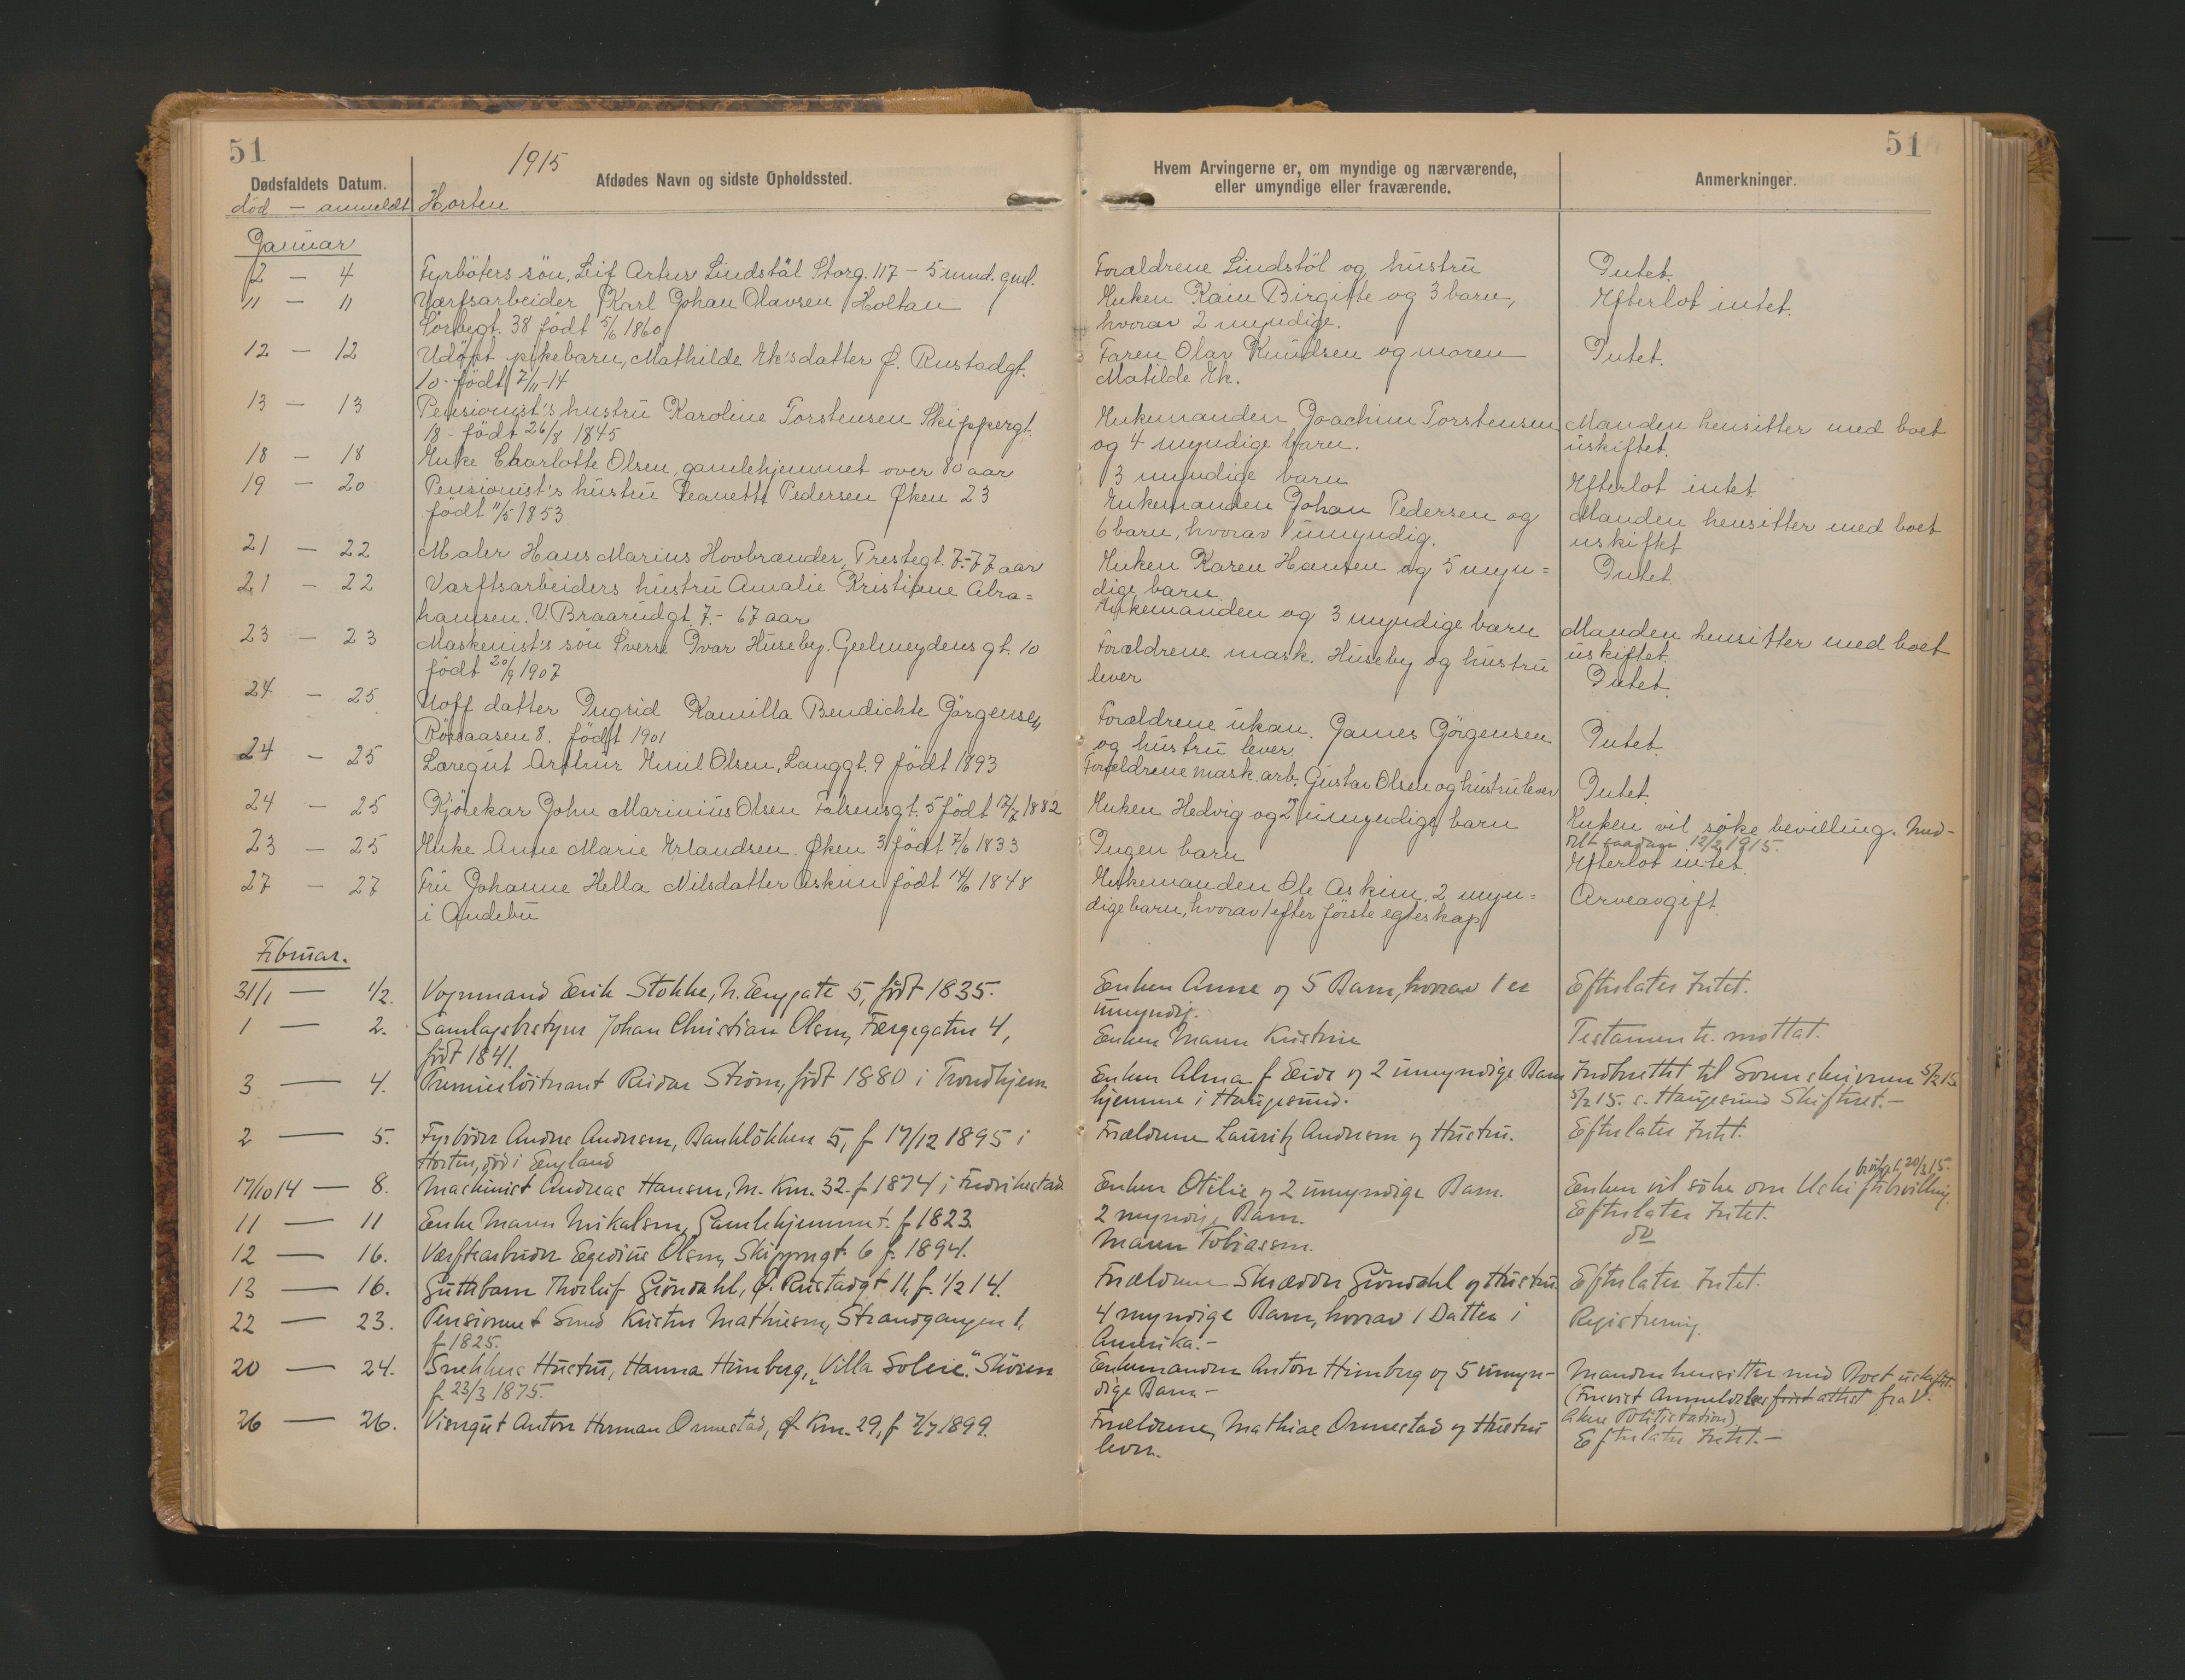 51
1915
Dødsfaldets Datum.
Afdødes Navn og sidste Opholdssted.
død - anmeldt
Horten
Januar
2 - 4 Fyrböters sön, Leif Artur Lindstöl Storg. 117 - 5 mnd. gml.
11 - 11 Værfsarbeider Karl Johan Olavsen Holtan
Sörbygt. 38 födt 5/6 1860
12 - 12 Udöpt pikebarn, Mathilde Ek'sdatter Ø. Rustadgt.
10 - födt 7/11-14
13 - 13 Pensionist's hustru Karoline Torstensen Skippergt.
18 - födt 26/8 1845
18 - 18 Enke Charlotte Olsen, gamlehjemmet over 80 aar
19 - 20 Pensionist's hustru Jeanette Pedersen Øken 23
födt 11/5 1853
21 - 22 Maler Hans Marius Hovbrænder, Prestegt. 7 - 77 aar
21 - 22 Varftsarbeiders hustru Amalie Kristiane Abra=
hamsen. V. Braarudgt. 7. - 67 aar
23 - 23 Maskenist's sön Sverre Ivar Huseby. Geelmeydens gt. 10
födt 20/9 1907
24 - 25 Uoff datter Ingrid Kamilla Bendickte Jörgensen
Röraasen 8. födt 1901
24 - 25 Læregut Arthur Emil Olsen, Langgt. 9 födt 1893
24 - 25 Kjörekar John Marinius Olsen Falsensgt. 5 födt 17/7 1882
23 - 25 Enke Anne Marie Erlandsen Øken 3 födt 7/6 1833
27 - 27 Fru Johanne Hella Nilsdatter Askim födt 14/6 1848
i Andebu
Februar.
31/1 - 1/2. Vognmand Erik Stokke, N. Enggate 5, født 1835.
1 - 2. Samlagsbestyrer Johan Christian Olsen, Færgegaten 4,
født 1841.
3 - 4. Premierløitnant Reidar Strøm, født 1880 i Trondhjem
2 - 5. Fyrbøder Andne Andersen, Bankløkken 5, f 17/12 1895 i
Horten, død i England
17/10 14 - 8. Maskinist Andreas Hansen, M. Km. 32. f 1874 i Fredrikstad
11 - 11 Enke Maren Mikalsen, Gamlehjemmet. f 1823.
12 - 16. Værftsarbeider Egedius Olsen, Skippergt. 6 f. 1894.
13 - 16. Guttebarn Thorleif Gröndahl, Ø. Rustadgt. 11, f. 1/2 14.
22 - 23. Pensioneret Smed Kristen Mathiesen, Strandgangen 1,
f 1825.
20 - 24. Snekkers Hustru, Hanna Heimberg, "Villa Soleie". Skoien
f. 23/3 1875.
26 - 26. Visergut Anton Herman Ormestad, Ø Km. 29, f 7/7 1899.
51
Hvem Arvingerne er, om myndige og nærværende,
eller umyndige eller fraværende.
Anmerkninger.
Forældrene Lindstöl og hustru
Intet.
Enken Karn Birgitte og 3 barn,
hvorav 2 myndige.
Efterlot intet.
Faren Olav Knudsen og moren
Matilde Ek.
Intet.
Enkemanden Joachim Torstensen
og 4 myndige barn.
Manden hensitter med boet
uskiftet.
3 myndige barn
Efterlot intet
Enkemanden Johan Pedersen og
6 barn, hvorav 1 umyndig.
Manden hensitter med boet
uskiftet
Enken Karen Hansen og 5 myn=
dige barn
Intet
Enkemanden og 3 myndige barn
Manden hensitter med boet
uskiftet.
Forældrene mask. Huseby og hustru
lever
Intet.
Forældrene ukan. James Jörgensen
og hustru lever.
Intet.
Forældrene mask. arb. Gustav Olsen og hustru lever
Intet.
Enken Hedvig og 2 umyndige barn
Enken vil søke bevilling. Med-
delt 12/2 1915.
Ingen barn
Efterlot intet.
Enkemanden Ole Askim. 2 myn=
dige barn, hvorav 1 efter förste egteskap
Arveavgift.
Enken Anne og 5 Barn, hvorav 1 er
umyndig.
Efterlater Intet.
Enken Maren Kristine
Testamente mottat.
Enken Alma f Eide og 2 umyndige Barn
hjemme i Haugesund.
Indberettet til Sorenskriveren 5/2 15
5/2 15. s. Haugesund Skifteret. -
Forældrene Lauritz Andersen og Hustru.
Efterlater Intet.
Enken Otilie og 2 umyndige Barn.
bevilget 20/3 15.
Enken vil söke om Uskiftebevilling.
2 myndige Barn.
Efterlater Intet.
Maren Tobiassen.
do
Forældrene Skrædder Gröndahl og Hustru.
Efterlater Intet.
4 myndige Barn, hvorav 1 Datter i
Amerika. -
Registrering.
Enkemanden Anton Heimberg og 5 umyn-
dige Barn -
Manden hensitter med Boet uskiftet.
(Forevist Anmeldelses attest fra V.
Akers Politistation)
Forældrene, Mathias Ormestad og Hustru
lever.
Efterlater Intet. -